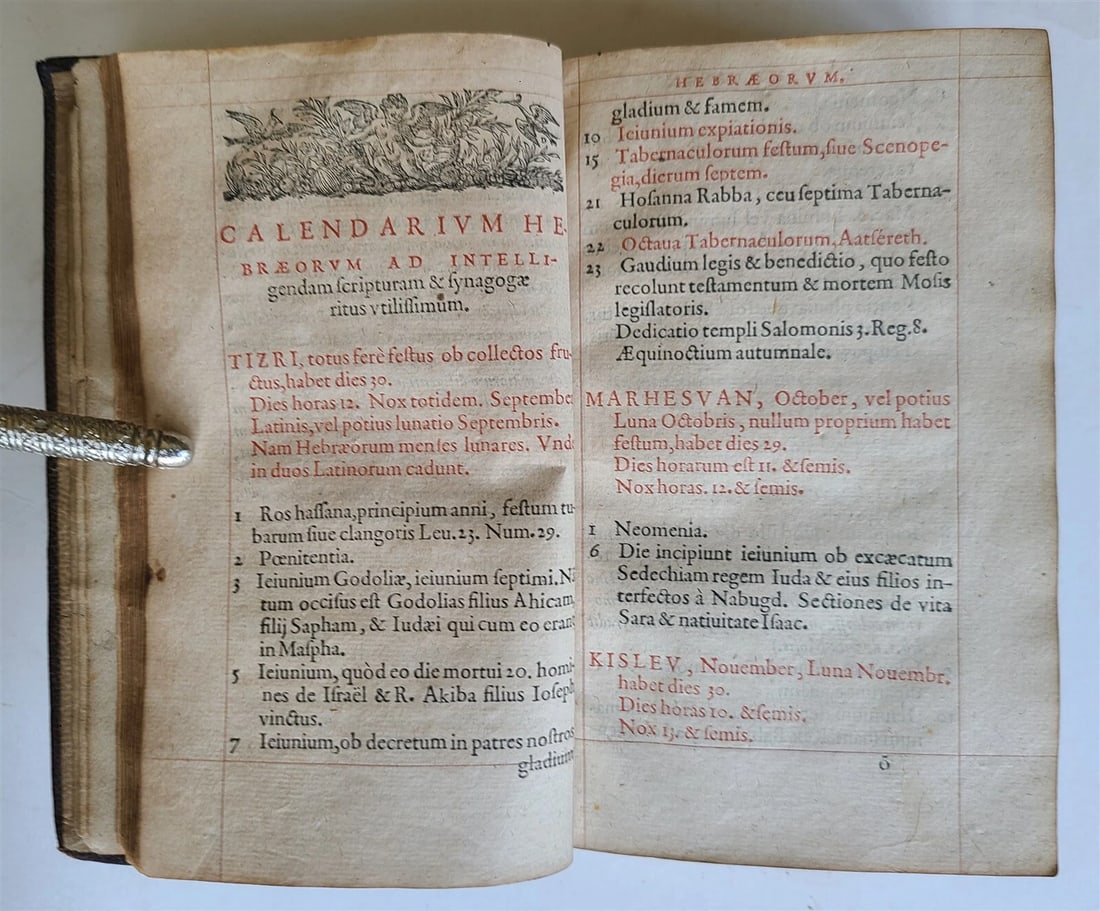 CALENDARIVM HE-
BRÆORVM AD INTELLI-
gendam ſcripturam & ſynagogæ
ritus vtiliſſimum.
TIZRI, totus ferè feſtus ob collectos fru-
ctus, habet dies 30.
Dies horas 12. Nox totidem. Septembe
Latinis, vel potius lunatio Septembris.
Nam Hebræorum menſes lunares. Vnd
in duos Latinorum cadunt.
1 Ros haſſana, principium anni, feſtum tu-
barum ſiue clangoris Leu. 23. Num. 29.
2 Pœnitentia.
3 Ieiunium Godoliæ, ieiunium ſeptimi. N
tum occiſus eſt Godolias filius Ahicam,
filij Sapham, & Iudæi qui cum eo erant
in Maſpha.
5 Ieiunium, quòd eo die mortui 20. homi-
nes de Iſraël & R. Akiba filius Ioſeph
vinctus.
7 Ieiunium, ob decretum in patres noſtros
gladium
HEBRÆORVM.
gladium & famem.
10 Ieiunium expiationis.
15 Tabernaculorum feſtum, ſiue Scenope-
gia, dierum ſeptem.
21 Hoſanna Rabba, ceu ſeptima Taberna-
culorum.
22 Octaua Tabernaculorum, Aatſéreth.
23 Gaudium legis & benedictio, quo feſto
recolunt teſtamentum & mortem Moſis
legiſlatoris.
Dedicatio templi Salomonis 3. Reg. 8.
Æquinoctium autumnale.
MARHESVAN, October, vel potius
Luna Octobris, nullum proprium habet
feſtum, habet dies 29.
Dies horarum eſt 11. & ſemis.
Nox horas. 12. & ſemis.
1 Neomenia.
6 Die incipiunt ieiunium ob excæcatum
Sedechiam regem Iuda & eius filios in-
terfectos à Nabugd. Sectiones de vita
Sara & natiuitate Iſaac.
KISLEV, Nouember, Luna Nouembr.
habet dies 30.
Dies horas 10. & ſemis.
Nox 13. & ſemis.
õ